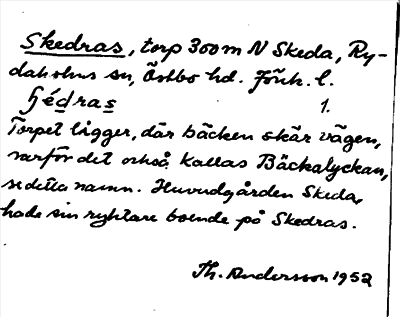 Skedras, torp 300 m N Skeda, Ry-
daholms sn, Östbo hd. Jönk. l.
hédras 1.
Torpet ligger, där bäcken skär vägen,
varför det också kallas Bäckalyckan,
se detta namn. Huvudgården Skeda,
hade sin ryktare boende på Skedras.
Th. Andersson 1952